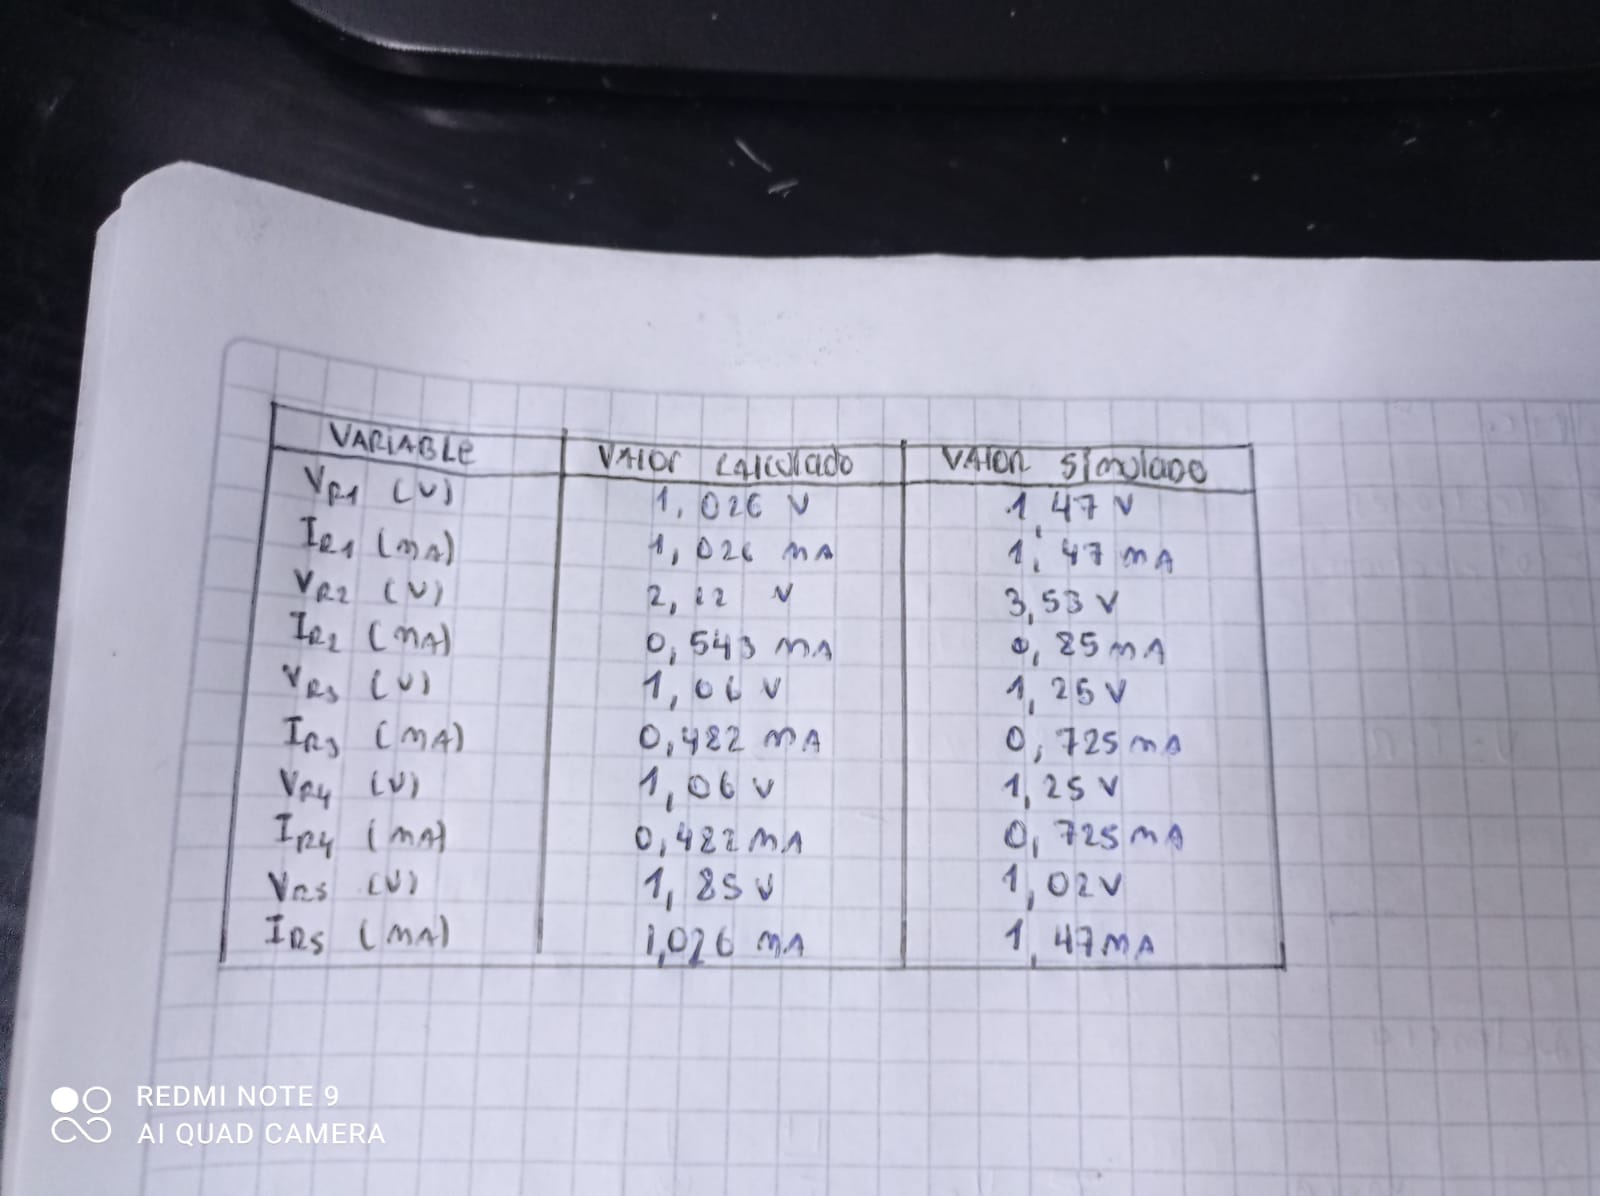 VARIABLE VALOR CALCULADO VALOR SIMULADO
VR1 (V) 1,026 V 1,47 V
IR1 (mA) 1,026 mA 1,47 mA
VR2 (V) 2,12 V 3,53 V
IR2 (mA) 0,543 mA 0,85 mA
VR3 (V) 1,06 V 1,25 V
IR3 (mA) 0,482 mA 0,725 mA
VR4 (V) 1,06 V 1,25 V
IR4 (mA) 0,482 mA 0,725 mA
VR5 (V) 1,85 V 1,02 V
IR5 (mA) 1,026 mA 1,47 mA
REDMI NOTE 9
AI QUAD CAMERA